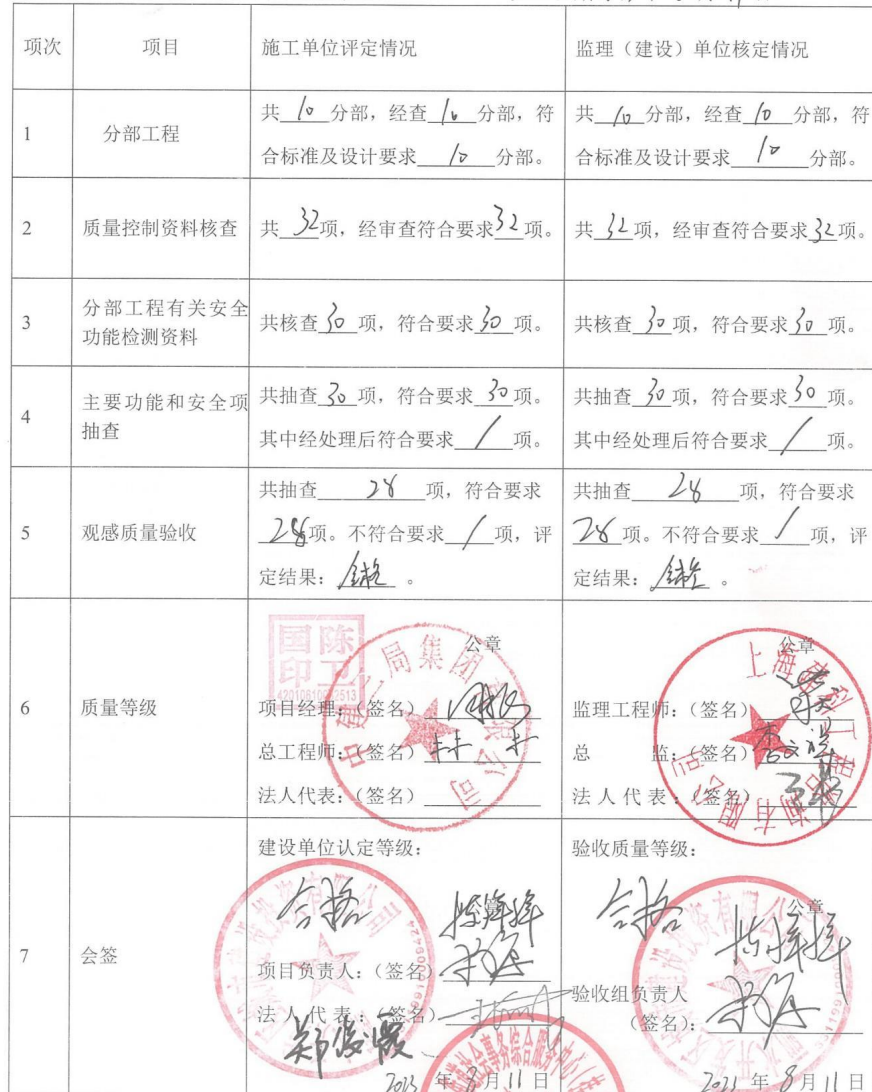 项次 项目 施工单位评定情况 监理（建设）单位核定情况
1 分部工程
共 10 分部，经查 10 分部，符
合标准及设计要求 10 分部。
共 10 分部，经查 10 分部，符
合标准及设计要求 10 分部。
2 质量控制资料核查
共 32 项，经审查符合要求 32 项。
共 32 项，经审查符合要求 32 项。
3 分部工程有关安全
功能检测资料
共核查 30 项，符合要求 30 项。
共核查 30 项，符合要求 30 项。
4 主要功能和安全项
抽查
共抽查 30 项，符合要求 30 项。
其中经处理后符合要求 / 项。
共抽查 30 项，符合要求 30 项。
其中经处理后符合要求 / 项。
5 观感质量验收
共抽查 28 项，符合要求
28 项。不符合要求 / 项，评
定结果：合格 。
共抽查 28 项，符合要求
28 项。不符合要求 / 项，评
定结果：合格 。
6 质量等级
国陈
印卫
公章
局集团有限公司
项目经理：（签名）
总工程师：（签名）
法人代表：（签名）
公章
上海 科工程 询有限公司
监理工程师：（签名）
总 监：（签名）
法人代表：（签名）
7 会签
建设单位认定等级：
合格
公章
项目负责人：（签名）
法人代表：（签名）
郑俊霞
2023 年 8 月 11 日
验收质量等级：
合格
公章
验收组负责人
（签名）：
年 8 月 11 日